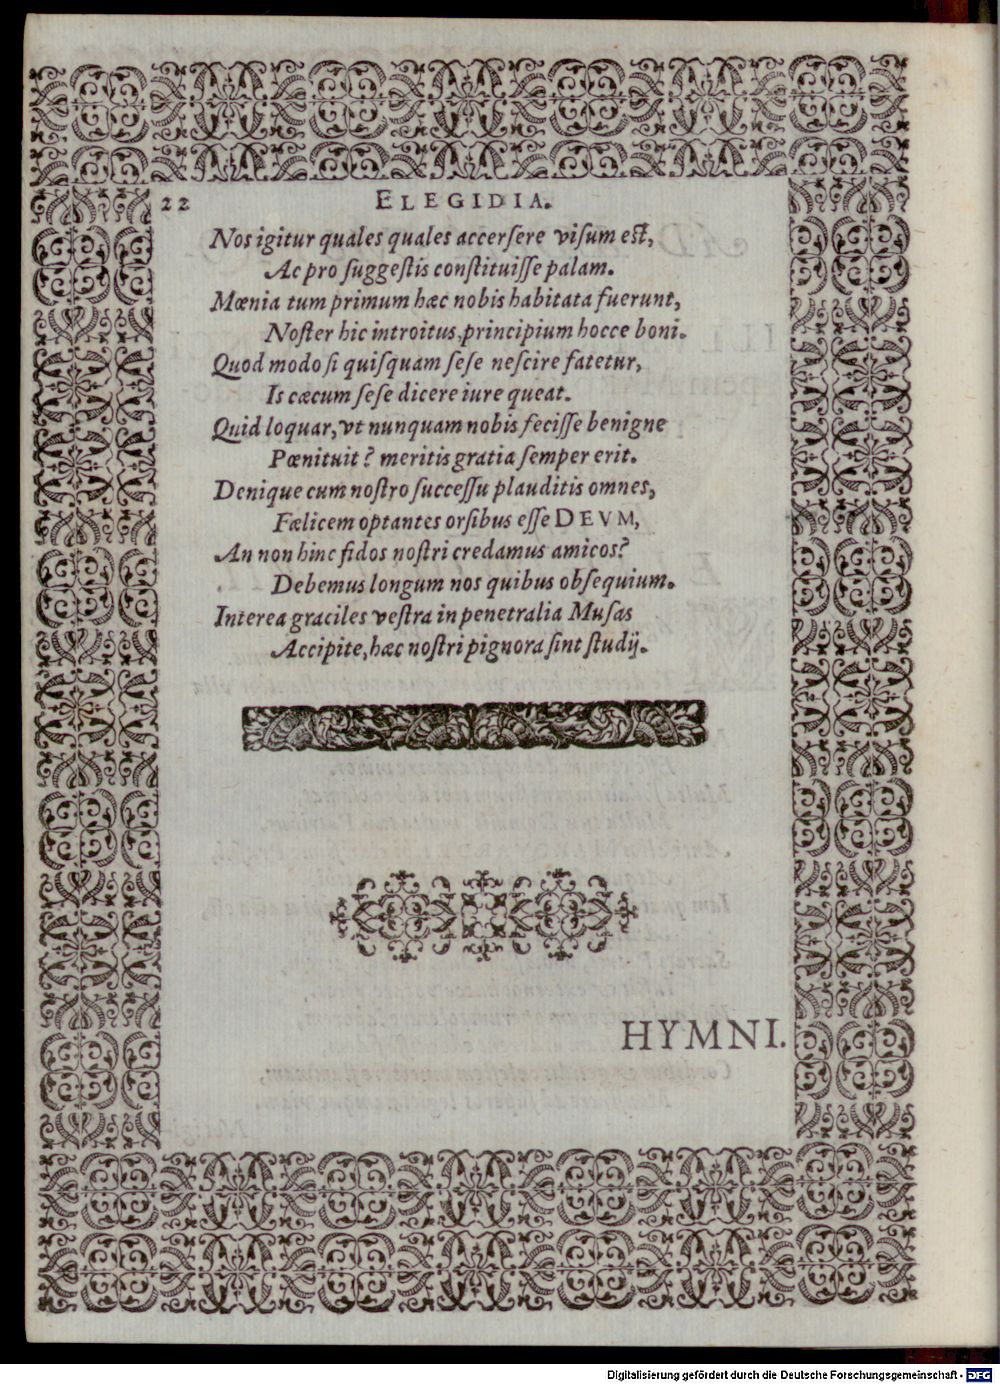 22
ELEGIDIA.
Nos igitur quales quales accerſere viſum eſt,
Ac pro ſuggeſtis conſtituiſſe palam.
Mœnia tum primum hæc nobis habitata fuerunt,
Noſter hic introitus, principium hocce boni.
Quod modo ſi quiſquam ſeſe neſcire fatetur,
Is cæcum ſeſe dicere iure queat.
Quid loquar, vt nunquam nobis feciſſe benigne
Pœnituit? meritis gratia ſemper erit.
Denique cum noſtro ſucceſſu plauditis omnes,
Fælicem optantes orſibus eſſe DEVM,
An non hinc fidos noſtri credamus amicos?
Debemus longum nos quibus obſequium.
Interea graciles veſtra in penetralia Muſas
Accipite, hæc noſtri pignora ſint ſtudij.
HYMNI.
Digitalisierung gefördert durch die Deutsche Forschungsgemeinschaft - DFG